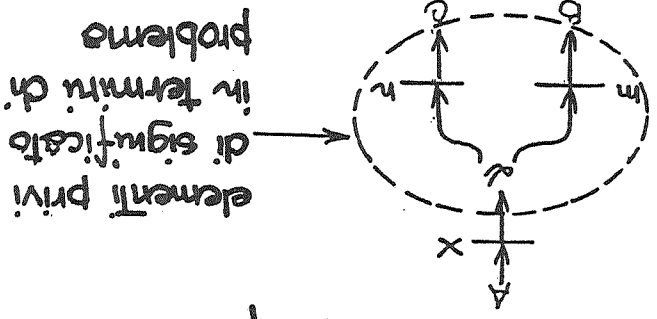 A
x
elementi privi
di significato
in termini di
problema
m n
B C